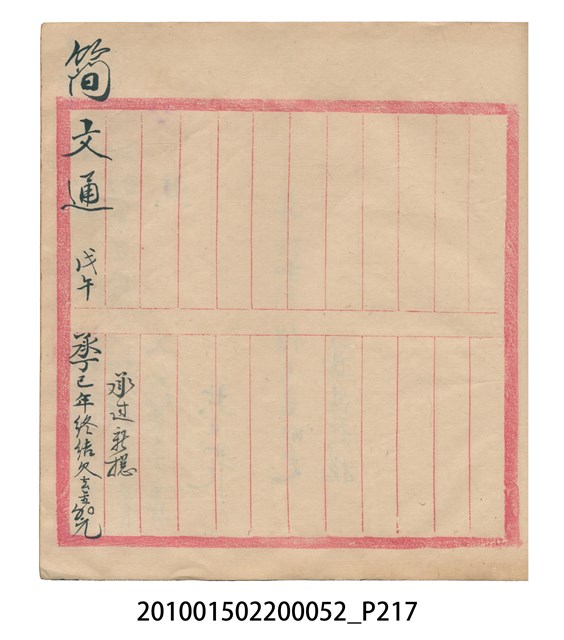 简文通
戊午
承丁巳年終結欠去
承过新摠
201001502200052_P217